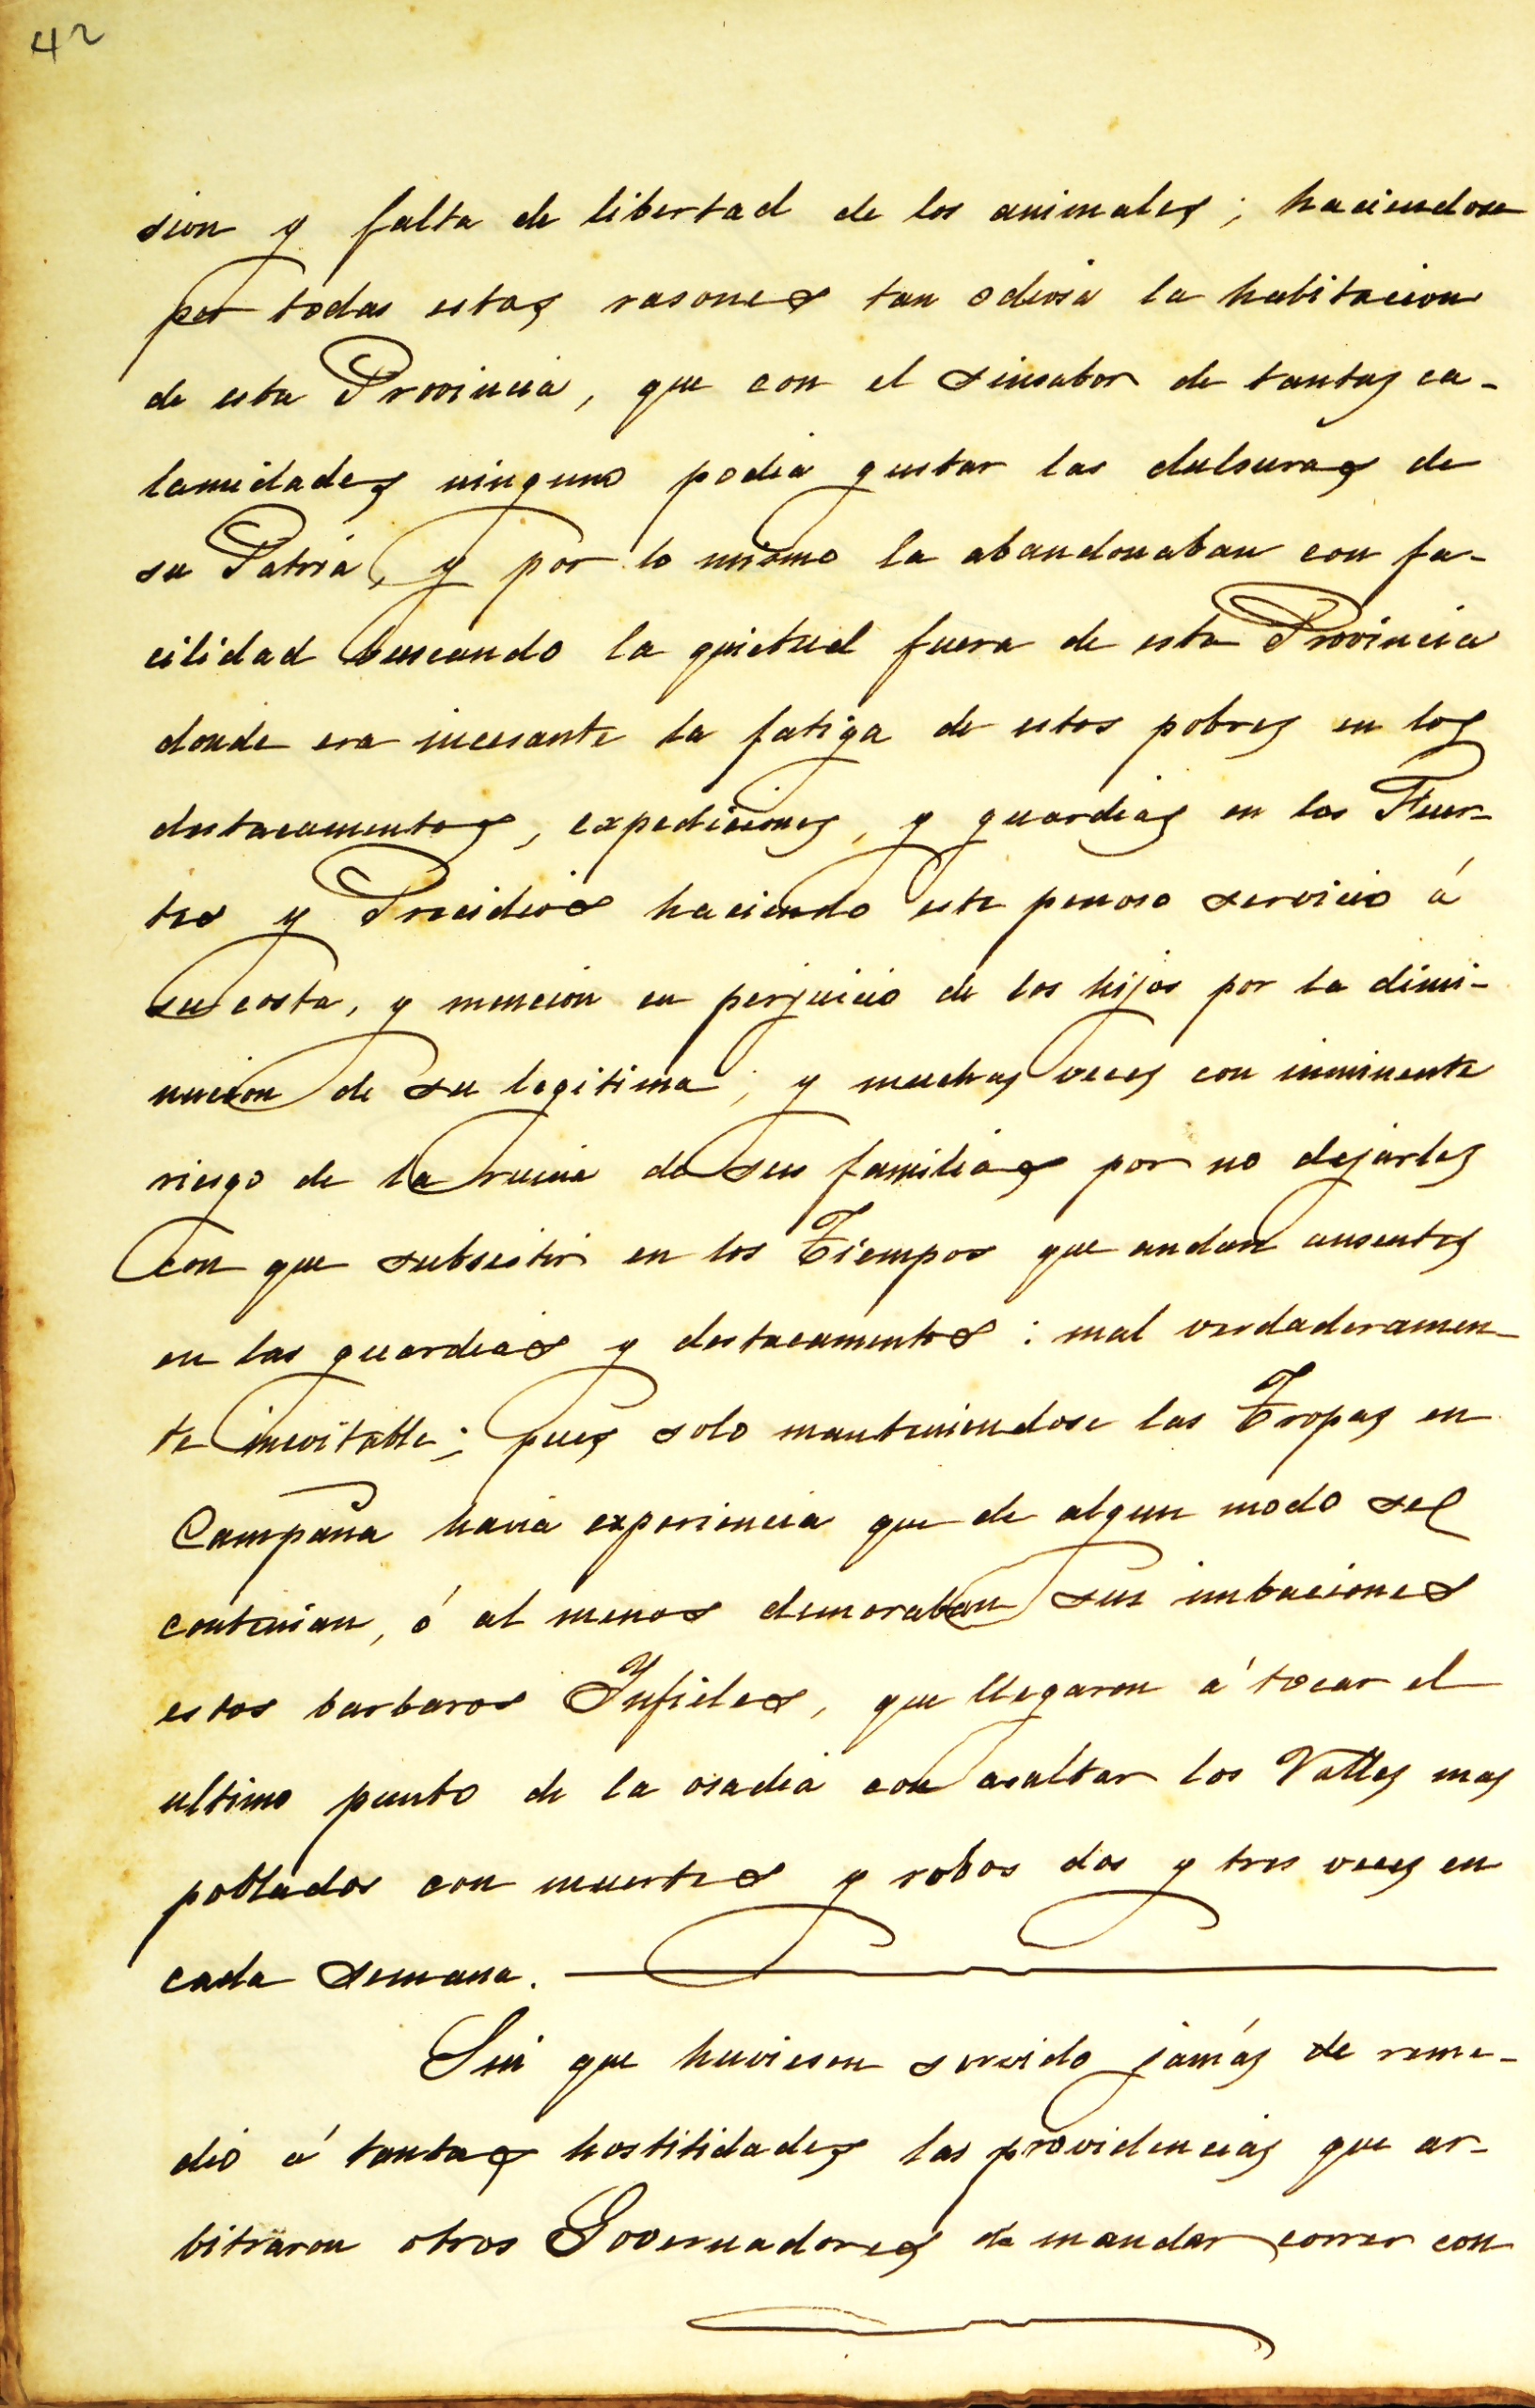 42
sion y falta de libertad de los animales; haciendose
por todas estas rasones tan odiosa la habitacion
de esta Provincia, que con el sinsabor de tantas ca-
lamidades ninguno podia gustar las dulsuras de
su Patria, y por lo mismo la abandonaban con fa-
cilidad buscando la quietud fuera de esta Provincia
donde era incesante la fatiga de estos pobres en los
destacamentos, expediciones, y guardias en los Fuer-
tes y Presidios haciendo este penoso servicio á
su costa, y mencion en perjuicio de los hijos por la dimi-
nucion de su legitima; y muchas veces con inminente
riesgo de la ruina de sus familias por no dejarles
con que subsistir en los Tiempos que andan ausentes
en las guardias y destacamentos: mal verdaderamen-
te inevitable; pues solo manteniendose las Tropas en
Campaña havia experiencia que de algun modo se
contenian, ó al menos demoraban sus imbaciones
estos barbaros Ynfieles, que llegaron á tocar el
ultimo punto de la osadia con asaltar los Valles mas
poblados con muertes y robos dos y tres veces en
cada semana.
Sin que huviesen servido jamás de reme-
dio á tantas hostilidades las providencias que ar-
bitraron otros Governadores de mandar correr con